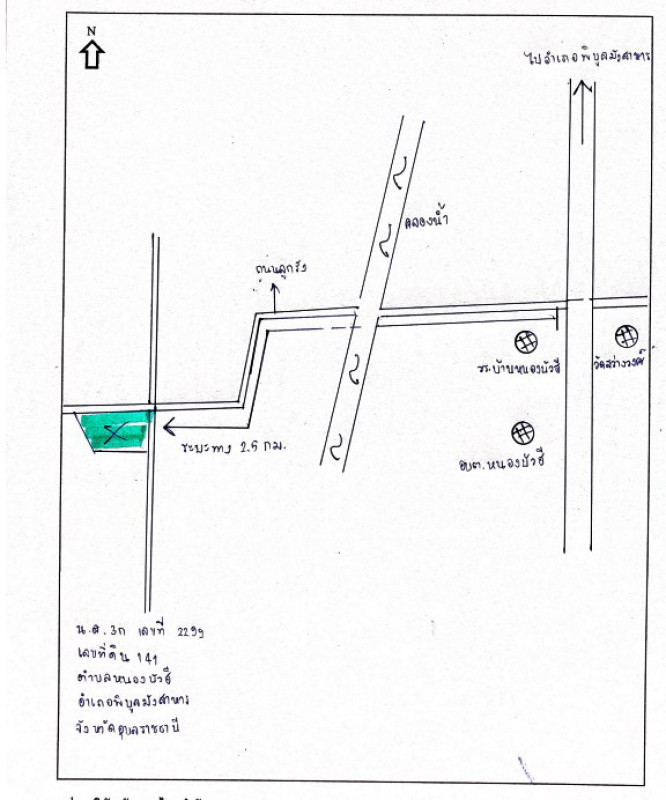 N
ไปอำเภอพิบูลมังสาหาร
คลองน้ำ
ถนนลูกรัง
บ้านหนองบัวฮี
วัดสว่างวงศ์
ระยะทาง 2.5 กม.
อบต.หนองบัวฮี
น.ส.3ก เลขที่ 2299
เลขที่ดิน 141
ตำบลหนองบัวฮี
อำเภอพิบูลมังสาหาร
จังหวัดอุบลราชธานี